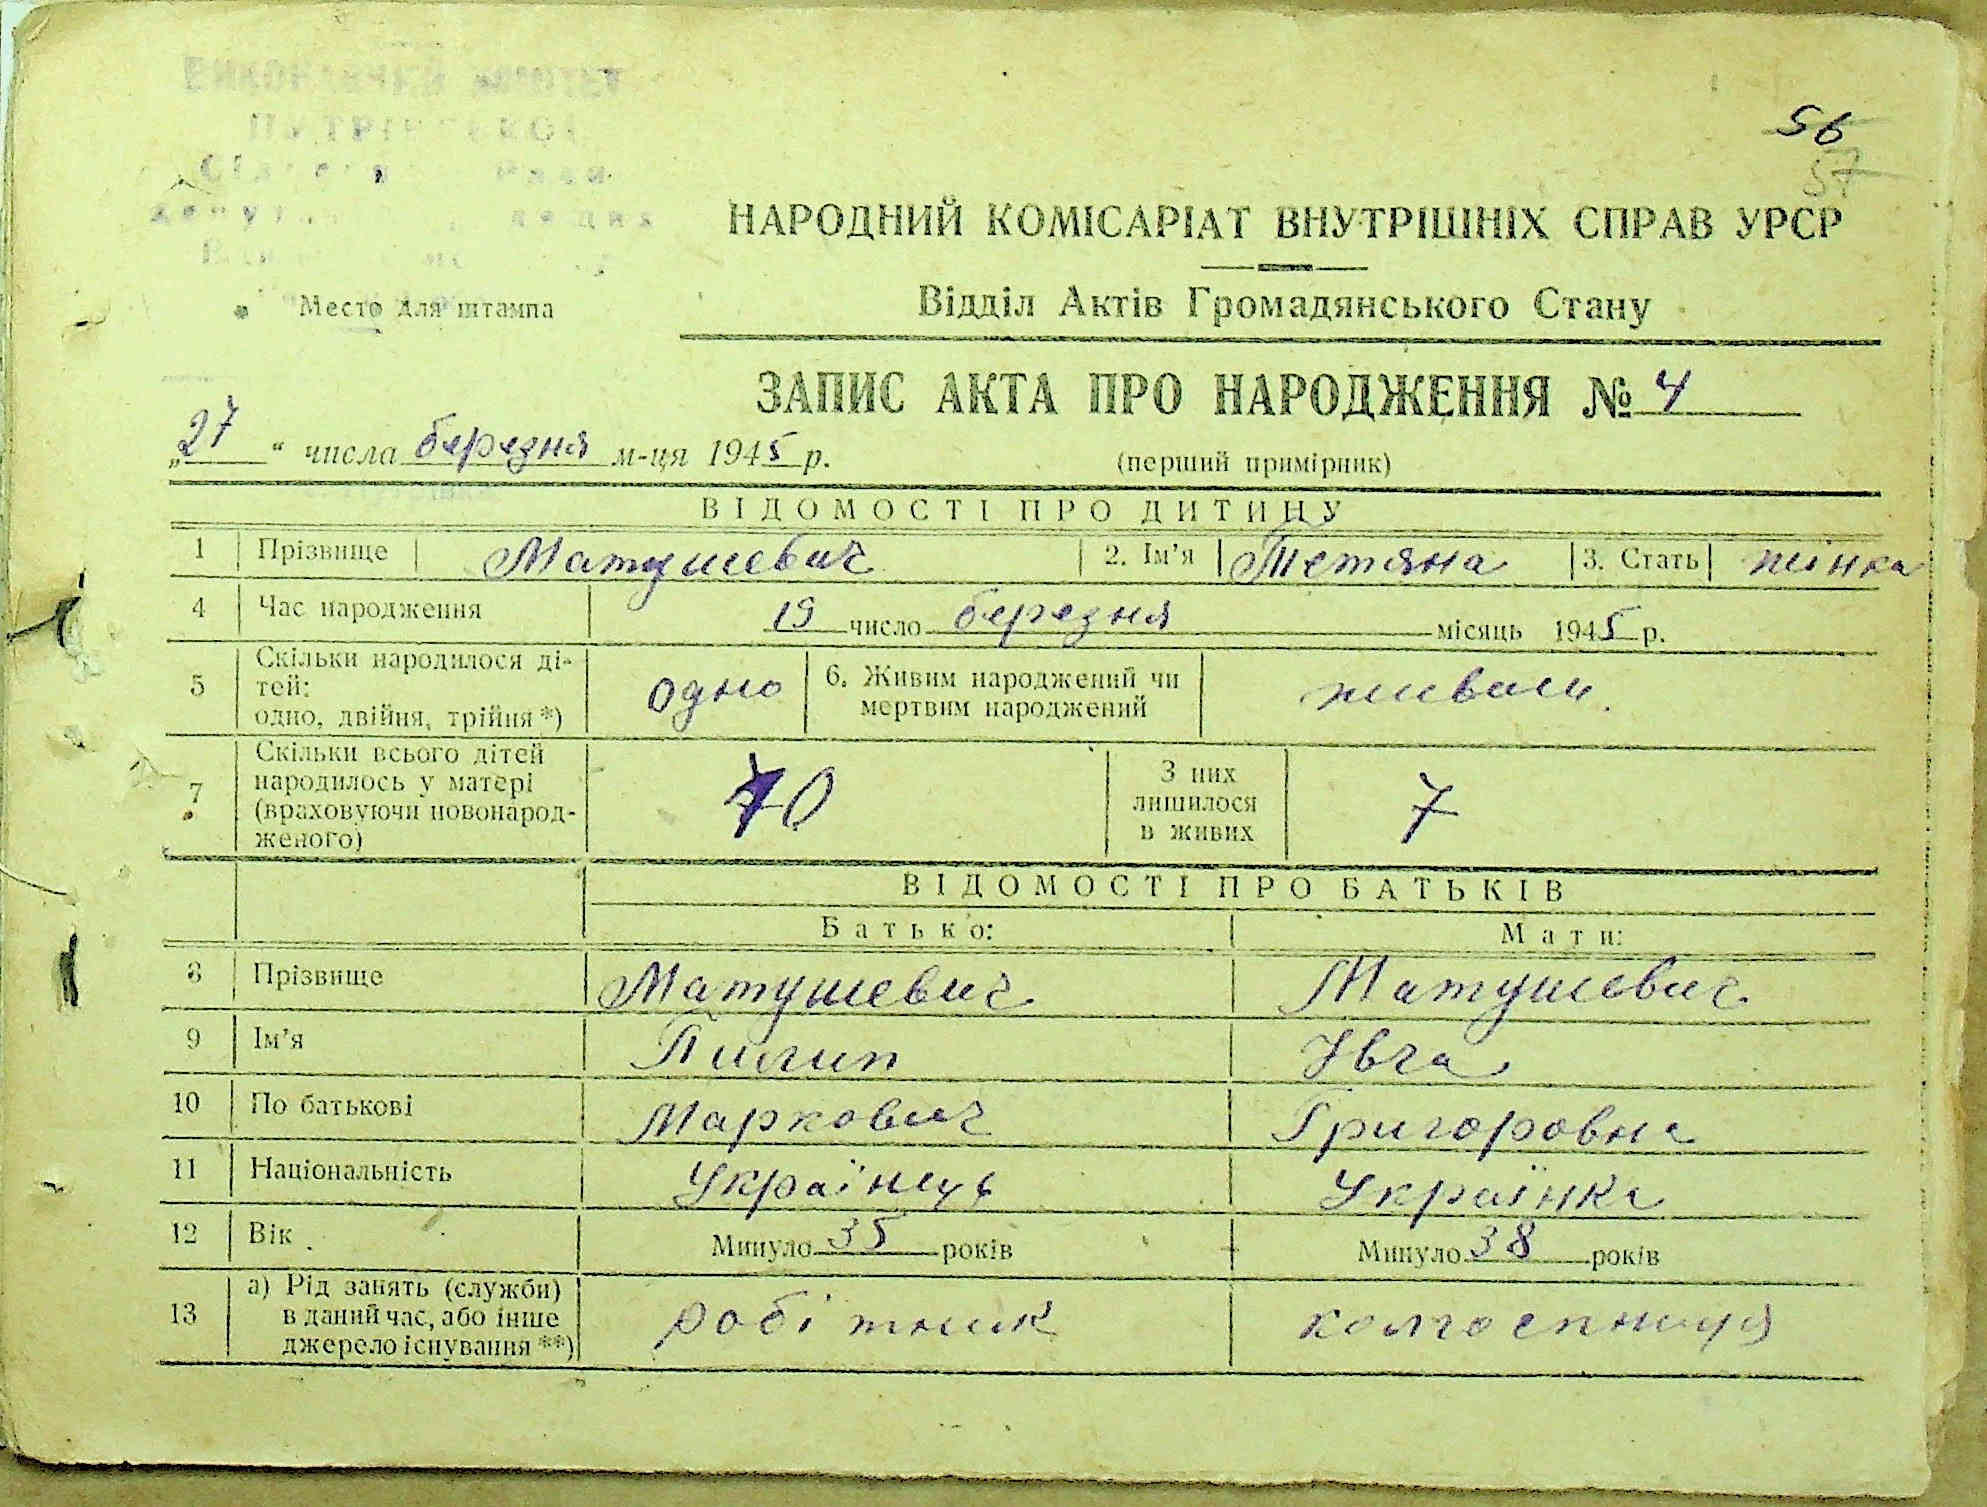 56
57
НАРОДНИЙ КОМІСАРІАТ ВНУТРІШНІХ СПРАВ УРСР
Место для штампа
Відділ Актів Громадянського Стану
ЗАПИС АКТА ПРО НАРОДЖЕННЯ № 4
„27“ числа березня м-ця 1945 р.
(перший примірник)
ВІДОМОСТІ ПРО ДИТИНУ
1 Прізвище Матушевич 2. Ім’я Тетяна 3. Стать жінка
4 Час народження 19 число березня місяць 1945 р.
5 Скільки народилося ді-
тей:
одно, двійня, трійня *) одно 6. Живим народжений чи
мертвим народжений живим.
7 Скільки всього дітей
народилось у матері
(враховуючи новонарод-
женого) 10 З них
лишилося
в живих 7
ВІДОМОСТІ ПРО БАТЬКІВ
Батько: Мати:
8 Прізвище Матушевич Матушевич
9 Ім’я Пилип Івга
10 По батькові Маркович Григоровна
11 Національність Українець Українка
12 Вік Минуло 35 років Минуло 38 років
13 а) Рід занять (служби)
в даний час, або інше
джерело існування **) робітник колгоспниця